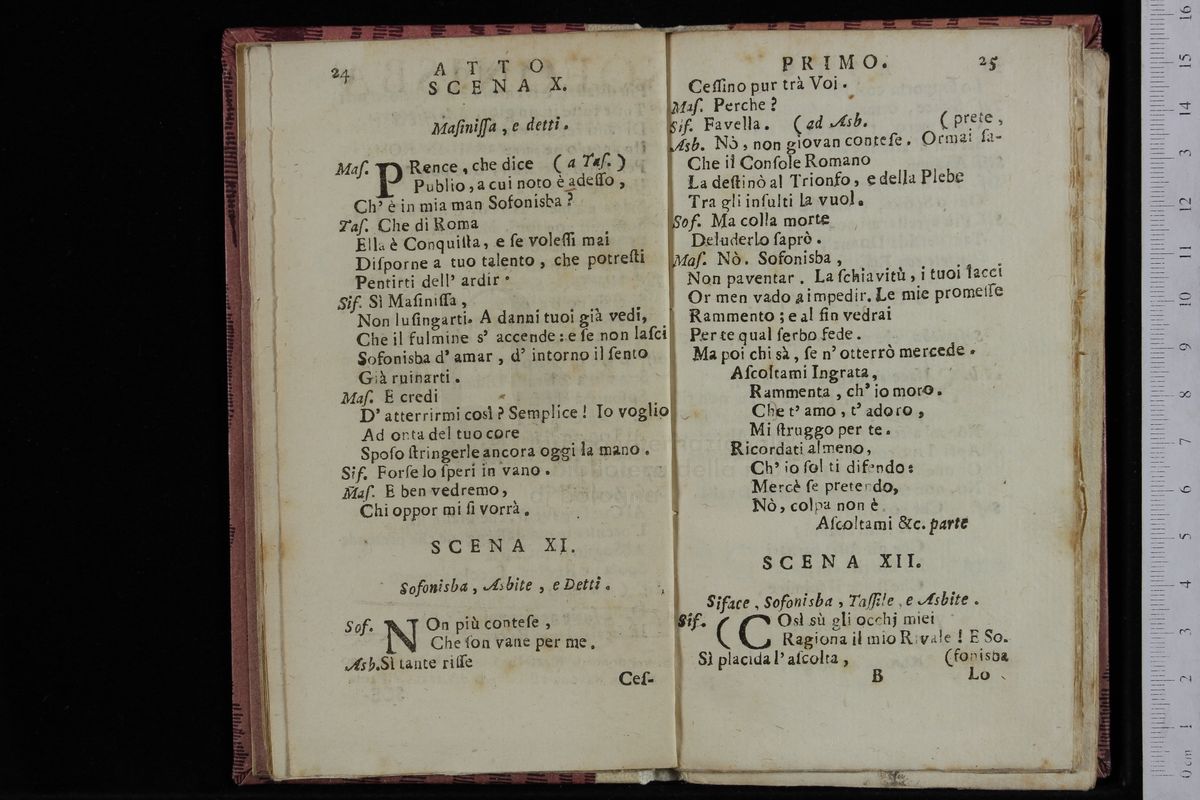 24
ATTO
SCENA X.
Masinissa, e detti.
Mas. PRence, che dice (a Tas.)
Publio, a cui noto è adesso,
Ch' è in mia man Sofonisba?
Tas. Che di Roma
Ella è Conquista, e se volessi mai
Disporne a tuo talento, che potresti
Pentirti dell' ardir.
Sif. Sì Masinissa,
Non lusingarti. A danni tuoi già vedi,
Che il fulmine s' accende: e se non lasci
Sofonisba d' amar, d' intorno il sento
Già ruinarti.
Mas. E credi
D' atterrirmi così? Semplice! Io voglio
Ad onta del tuo core
Sposo stringerle ancora oggi la mano.
Sif. Forse lo speri in vano.
Mas. E ben vedremo,
Chi oppor mi si vorrà.
SCENA XI.
Sofonisba, Asbite, e Detti.
Sof. NOn più contese,
Che son vane per me.
Asb. Sì tante risse
Ces-
PRIMO. 25
Cessino pur trà Voi.
Mas. Perche?
Sif. Favella. (ad Asb. (prete,
Asb. Nò, non giovan contese. Ormai sa-
Che il Console Romano
La destinò al Trionfo, e della Plebe
Tra gli insulti la vuol.
Sof. Ma colla morte
Deluderlo saprò.
Mas. Nò. Sofonisba,
Non paventar. La schiavitù, i tuoi lacci
Or men vado a impedir. Le mie promesse
Rammento; e al fin vedrai
Per te qual serbo fede.
Ma poi chi sà, se n' otterrò mercede.
Ascoltami Ingrata,
Rammenta, ch' io moro.
Che t' amo, t' adoro,
Mi struggo per te.
Ricordati almeno,
Ch' io sol ti difendo:
Mercè se pretendo,
Nò, colpa non è
Ascoltami &c. parte
SCENA XII.
Siface, Sofonisba, Tassile, e Asbite.
Sif. (COsì sù gli occhj miei
Ragiona il mio Rivale! E So-
Sì placida l' ascolta, (fonisba
B Lo